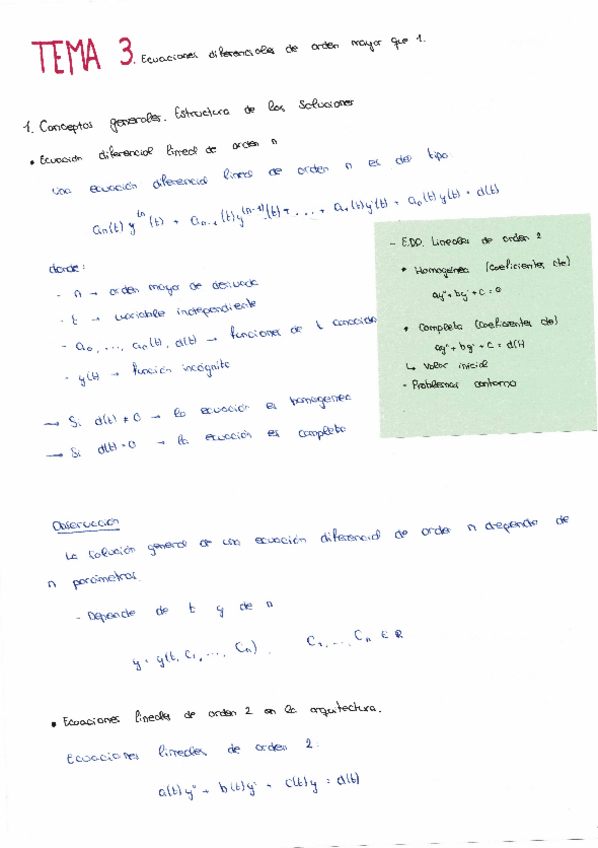 TEMA 3. Ecuaciones diferenciales de orden mayor que 1.
1. Conceptos generales. Estructura de las soluciones
• Ecuación diferencial lineal de orden n
Una ecuación diferencial lineal de orden n es del tipo:
an(t) y^(n (t) + an-1 (t) y^(n-1)(t) + ... + a1(t)y'(t) + a0(t)y(t) = d(t)
donde:
- n → orden mayor de derivada
- t → variable independiente
- a0, ..., an(t), d(t) → funciones de t conocida
- y(t) → función incógnita
→ Si d(t) ≠ 0 → la ecuación es homogénea
→ Si d(t) = 0 → la ecuación es completa
- E.D.O. Lineales de orden 2
• Homogénea (coeficientes cte)
ay'' + by' + c = 0
• Completa (coeficientes cte)
ay'' + by' + c = d(t)
↳ Valor inicial
- Problemas contorno
Observación
La solución general de una ecuación diferencial de orden n depende de
n parámetros.
- Depende de t y de n
y = y(t, C1, ..., Cn). C1, ..., Cn ∈ R
• Ecuaciones lineales de orden 2 en la arquitectura.
Ecuaciones lineales de orden 2:
a(t)y'' + b(t)y' + c(t)y = d(t)